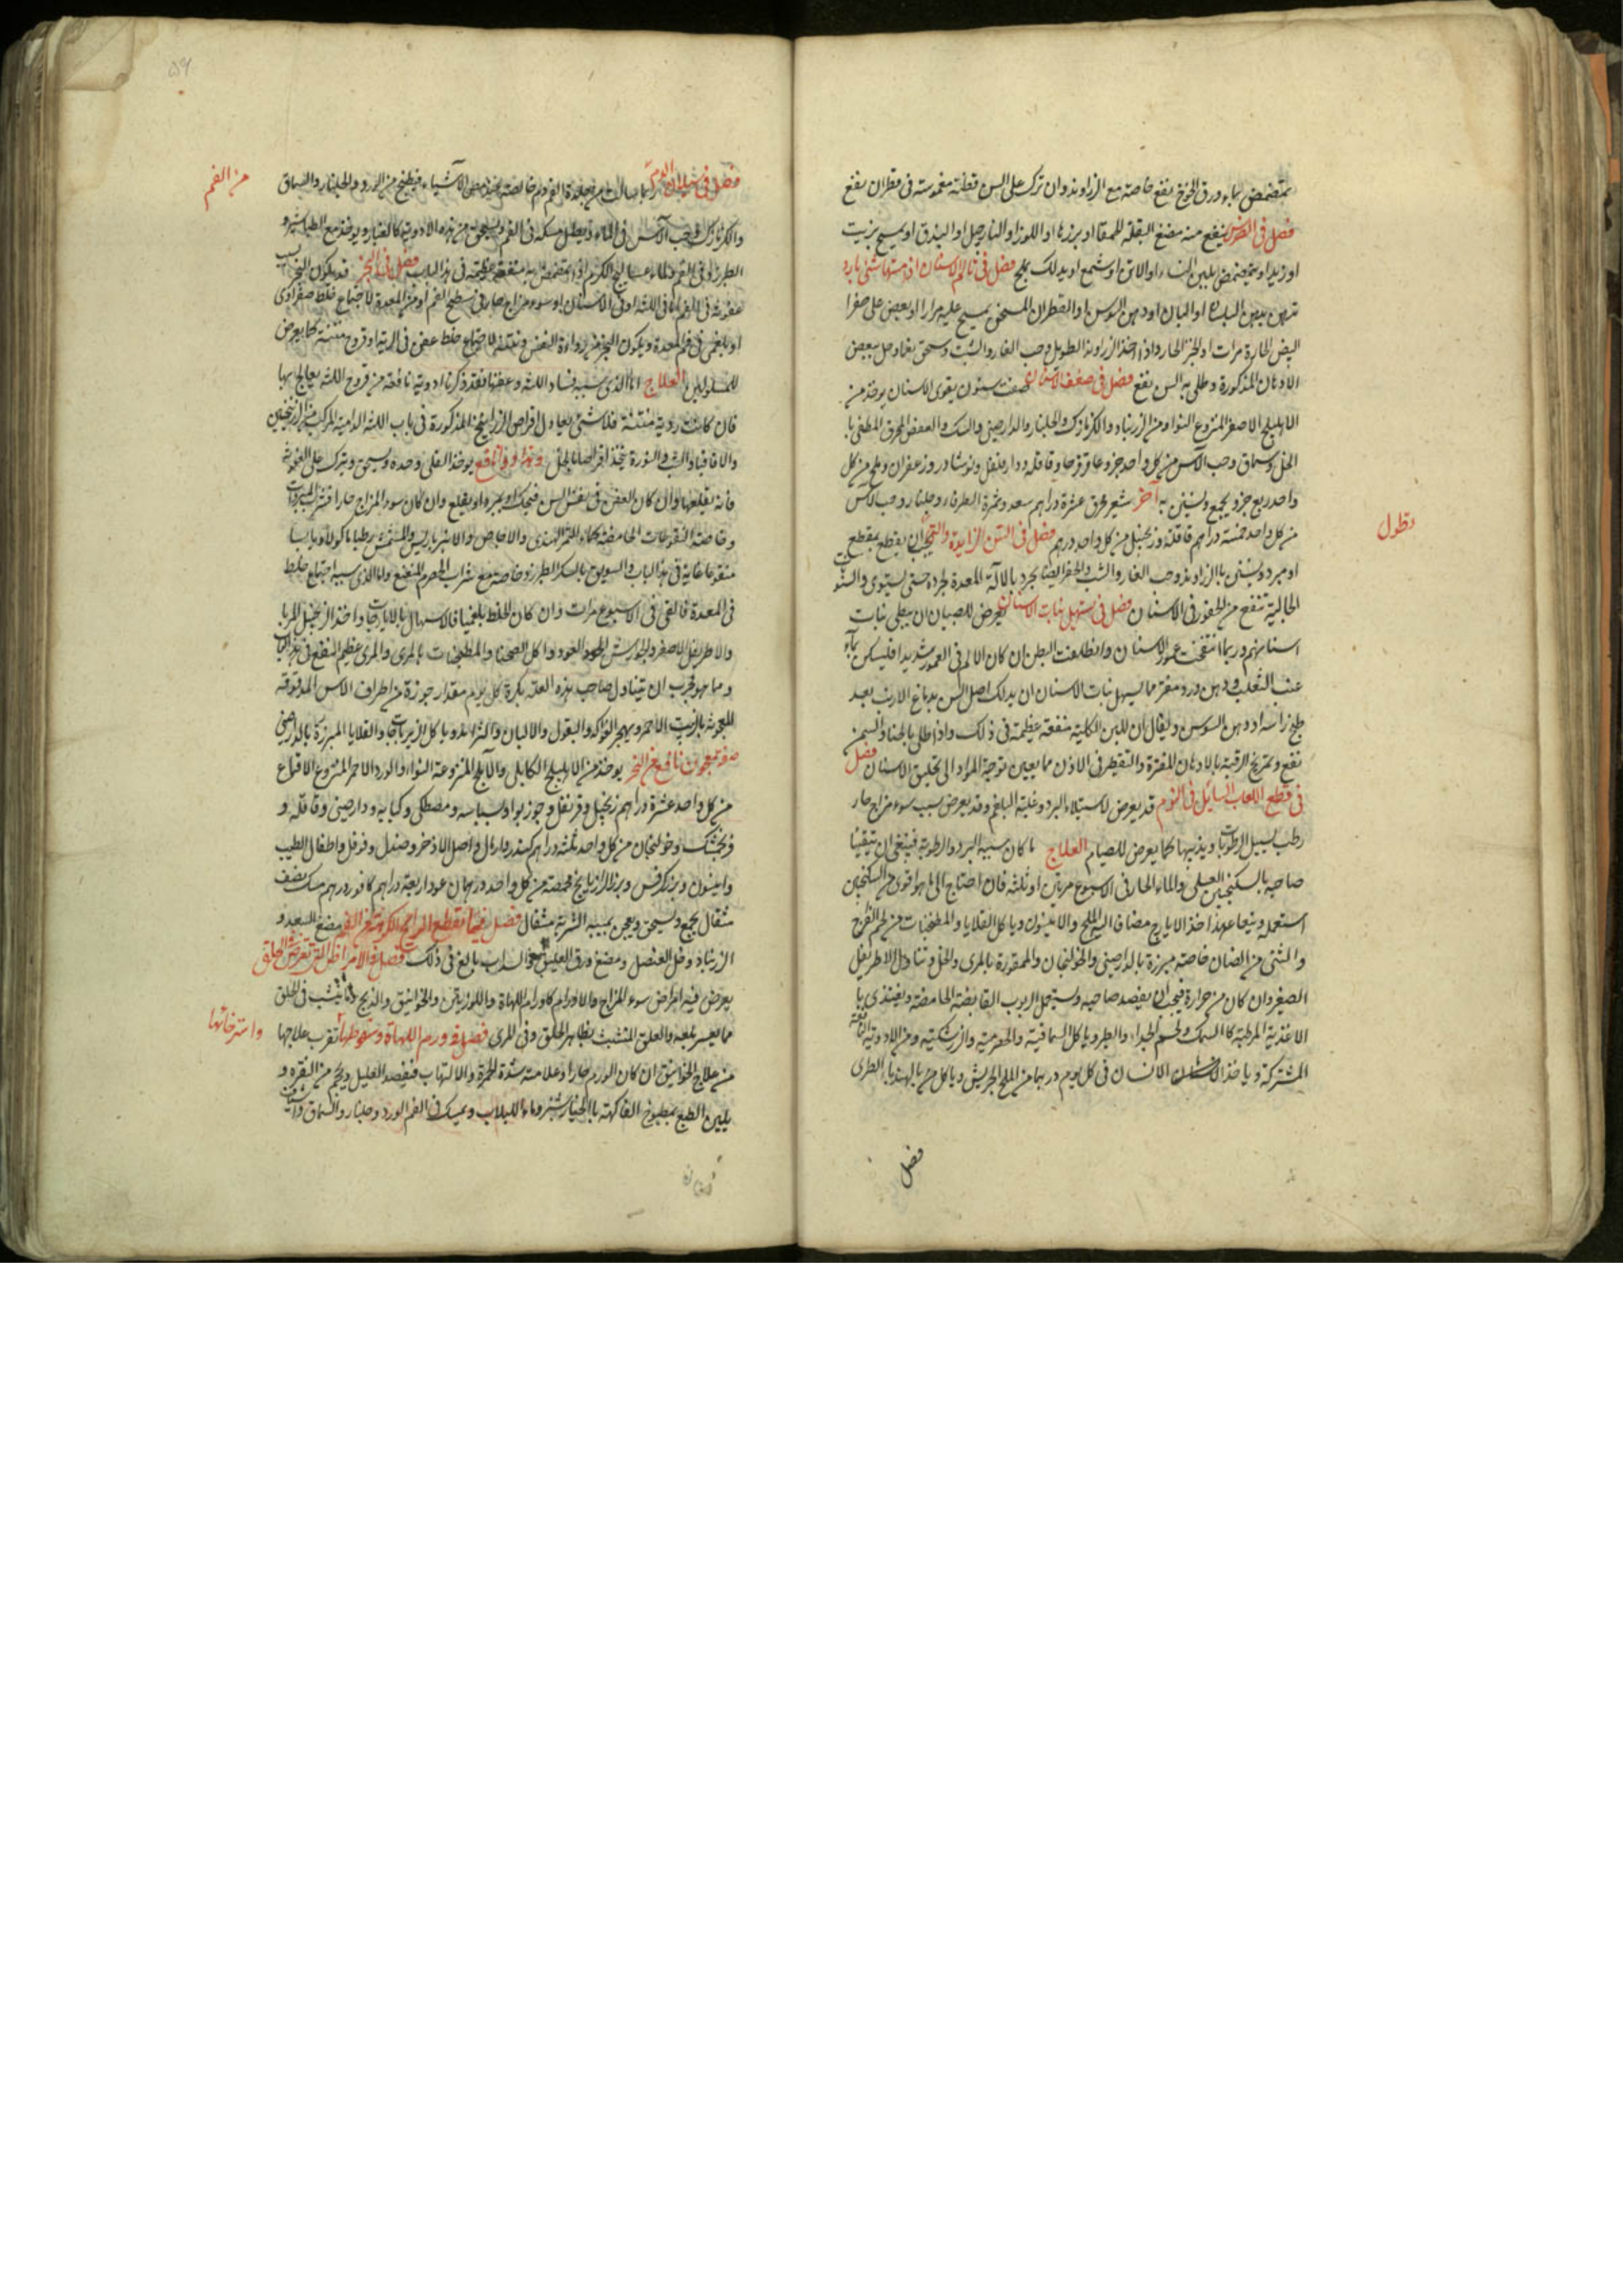 يتمضمض بماء ورق الخوخ نفع خاصة مع الزراوند وان ترك على السن قطنة مغموسة فى قطران نفع
فصل فى الضرس ينفع منه مضغ البقلة الحمقا او بزرها او اللوز او النارجيل او البندق او يمسح بزيت
او زبد او يتمضمض بلبن النساء او الاتن او شمع او يدلك بملح فصل فى تالم الاسنان اذا مستها شئ بارد
تدهن بدهن البان او دهن السوسن او القطران المسخن يمسح عليه مرارا او يعض على صفرا
البيض الحارة مرات او الخبز الحار واذا اخذ الزراوند الطويل وحب الغار والشب وسحق ناعما وحل ببعض
الادهان المذكورة وطلى به السن نفع فصل فى ضعف الاسنان صفت سنون يقوى الاسنان يوخذ من
الاهليلج الاصفر المنزوع النوا ومن الزرنباد والكزمازك والجلنار والدارصينى والسك والعفص المحرق المطفى با
الخل وسماق وحب الآس من كل واحد جزو عاقرقرحا وقاقلة ودارفلفل ونوشادر وزعفران وملح من كل
واحد ربع جزو يجمع ويستن به آخر شعير محرق عشرة دراهم سعد وثمرة الطرفاء وجلنار وحب الآس
من كل واحد خمسة دراهم قاقلة وزنجبيل من كل واحد درهم فصل فى السن الزايدة والتى يجب ان يقطع بمقطع
او مبرد ويستن بالزراوند وحب الغار والشب والحفر ايضا يجرد بالآلة المعدة لجرده حتى يستوى والسنو
الجالية تنفع من الحفور فى الاسنان فصل فى تسهيل نبات الاسنان يعرض للصبيان ان يبطى نبات
اسنانهم وربما انتفخت عمور الاسنان وانطلقت البطن ان كان الالم فى العمور شديدا فليسكن بماء
عنب الثعلب ودهن ورد مفتر مما يسهل نبات الاسنان ان يدلك اصل السن بدماغ الارنب بعد
طبخ راسه او دهن السوسن ويقال ان للبن الكلبة منفعة عظيمة فى ذلك واذا طلى بالحنا والسمن
نفع وتمريخ الرقبة بالادهان المفترة والتقطير فى الاذن مما يعين توجه المواد الى تخليق الاسنان فصل
فى قطع اللعاب السايل فى النوم قد يعرض لاستيلاء البرد وغلبة البلغم وقد يعرض بسبب سوء مزاج حار
رطب يسيل الرطوبات ويذيبها كما يعرض للصيام العلاج ما كان سببه البرد والرطوبة فينبغى ان يتقيا
صاحبه بالسكنجبين العسلى والماء الحار فى الاسبوع مرتين او ثلثة فان احتاج الى ما هو اقوى من السكنجبين
استعمله ويتعاهد اخذ الايارج مضافا اليه الملح والانيسون وياكل القلايا والمطجنات من لحم الفرخ
والثنى من الضان خاصة مبزرة بالدارصينى والخولنجان والممقورة بالمرى والخل وتناول الاطريفل
الصغير وان كان من حرارة فيجب ان يفصد صاحبه ويستعمل الربوب القابضة الحامضة ويغتذى با
الاغذية المرطبة كالسمك ولحم الجداء والطير وياكل السماقية والحصرمية والزرشكية ومن الادوية النافعة
المشتركة ويا خذ الانسان فى كل يوم درهما من الملح الجريش وياكل من بالهندبا الطرى
نطول
فصل
٥٩
فصل فى سيلان الدم من الفم
ربما سالت من جلدة الفم دم خالصة فينفع من الاشياء فيطبخ من الورد والجلنار والسماق
والكزمازك وحب الآس فى الماء ويطيل مسكه فى الفم
فصل فى البخر قد يكون البخر بسبب
عفونة فى الفم اما فى اللثة او فى الاسنان او سوء مزاج حار فى سطح الفم او فى المعدة لاجتماع خلط صفراوى
او بلغمى فى فم المعدة ويكون البخر من رداءة النفس ونتنه لاجتماع خلط عفن فى الرية او قروح منتنة كما يعرض
للمسلولين العلاج اما الذى سببه فساد اللثة وعفنها فقد ذكرنا ادوية نافعة من قروح اللثة يعالج بها
فان كانت ردية منتنة فلا شئ يعادل اقراص الزرانيخ المذكورة فى باب اللثة الدامية المركب من الزرنيخين
والاقاقيا والشب والنورة يتخذ اقراصا بالخل وهذا دواء نافع يوخذ القلى وحده ويسحق ويترك على العفونة
فانه يقلعها وان كان العفن فى نفس السن فيحك او يبرد او يقلع وان كان سوء المزاج حارا فشرب المبردات
وخاصة النقوعات الحامضة كماء التمر الهندى والاجاص والانبرباريس والمشمش رطبا ماكولا ويابسا
منقوعا غاية فى هذا الباب والسويق بالسكر الطبرزد وخاصة مع شراب الحصرم المنعنع واما الذى سببه اجتماع خلط
فى المعدة فالقى فى الاسبوع مرات وان كان الخلط بلغميا فالاسهال بالايارجات واخذ الزنجبيل المربا
والاطريفل الاصغر والجوارشن العود واكل الصحنا والمطجنات بالمرى والمرى عظيم النفع فى هذا الباب
ومما هو مجرب ان يتناول صاحب هذه العلة بكرة كل يوم مقدار جوزة من اطراف الآس المدقوقة
المعجونة بالزبيب الاحمر ويهجر الفواكه والبقول والالبان واكثر الاغذية وياكل الزيرباجات والقلايا المبزرة بالدارصينى
صفة معجون نافع من البخر يوخذ من الاهليلج الكابلى والآملج المنزوعة النواء والورد الاحمر المنزوع الاقماع
من كل واحد عشرة دراهم زنجبيل وقرنفل وجوزبوا وبسباسة ومصطكى وكبابه ودارصينى وقاقلة و
فرنجمشك وخولنجان من كل واحد ثلثة دراهم كندر واصل الاذخر وصندل وفوفل واظفار الطيب
وانيسون وبزر كرفس وبزر الرازيانج من كل واحد درهمان عود اربعة دراهم كافور درهم مسك نصف
مثقال يجمع ويسحق ويعجن بميبه الشربة مثقال فصل فيما يقطع الرايحة الكريهة من الفم مضغ السعد و
الزرنباد وخل العنصل ومضغ ورق العليق والسداب بالغ فى ذلك فصل فى الامراض التى تعرض فى الحلق
يعرض فيه امراض سوء المزاج والاورام كاورام اللهاة واللوزتين والخوانيق والذبحة وما ينشب فى الحلق
مما يعسر بلعه والعلق المتشبث بظاهر الحلق وفى المرى فصل فى ورم اللهاة وسقوطها واسترخائها تقرب علاجها
من علاج الخوانيق ان كان الورم حارا وعلامته شدة الحمرة والالتهاب فيفصد العليل ويحجم من النقرة و
يلين الطبع بمطبوخ الفاكهة بالخيارشنبر وماء اللبلاب ويمسك فى الفم الورد وجلنار والسماق